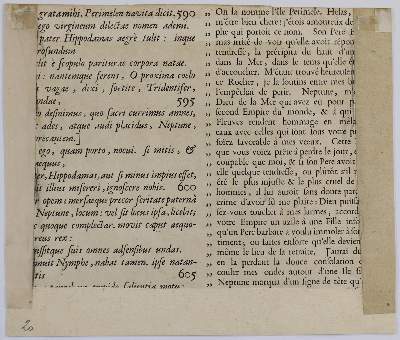 gratamihi. Perimelen navita dicit. 590
ego virgineum dilectæ nomen ademi.
pater Hippodamas ægrè tulit: inque
profundum
dit è scopulo parituræ corpora natæ.
: nantemque ferens, O proxima cœlo
vagæ, dixi, sortite, Tridentifer,
undæ, 595
definimus, quo sacri currimus amnes,
ades, atque audi placidus, Neptune,
precantem.]
ego, quam porto, nocui. si mitis, &
æquus,
er, Hippodamas, aut si minus impius esset,
it illius misereri, ignoscere nobis. 600
er opem: mersæque precor feritate paternâ
Neptune, locum: vel sit locus ipsa, licebit;
c quoque complectar. movit caput æquo-
reus rex:
ussitque suis omnes adsensibus undas.
imuit Nymphe, nabat tamen. ipse natan-
tis 605
„ On la nomme l'Ile Perimele. Helas,
„ m'être bien chere! j'étois amoureux de
„ phe qui portoit ce nom. Son Pere
„ mas irrité de voir qu'elle avoit répon
„ tendresse, la précipita du haut d'un
„ dans la Mer, dans le tems qu'elle ét
„ d'accoucher. M'étant trouvé heureusem
„ ce Rocher, je la soutins entre mes b
„ l'empêchai de perir. Neptune,
„ Dieu de la Mer qui avez eu pour p
„ second Empire du monde, & à qui
„ Fleuves rendent hommage en mêla
„ eaux avec celles qui sont sous votre pu
„ soïez favorable à mes vœux. Cette
„ que vous voïez prête à perdre le jour,
„ coupable que moi, & si son Pere avoit
„ elle quelque tendresse, ou plutôt s'il
„ été le plus injuste & le plus cruel de
„ hommes, il lui auroit sans doute par
„ crime d'avoir sû me plaire: Dieu puissa
„ sez-vous toucher à mes larmes; accord
„ votre Empire un azile à une Fille infor
„ qu'un Pere barbare a voulu immoler à so
„ timent; ou faites ensorte qu'elle devien
„ même le lieu de sa retraite. J'aurai du
„ en la perdant la douce consolation
„ couler mes ondes autour d'une Ile si
„ Neptune marqua d'un signe de tête qu'
20